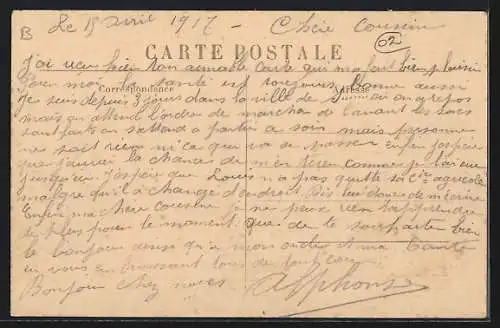 B Le 15 Avril 1917 - Chère Cousine
02
CARTE POSTALE
J'ai reçu hier ton aimable carte qui m'a fait bien plaisir
Pour moi la santé est toujours bonne aussi
Correspondance Adresse
Je suis depuis 3 jours dans la ville de où on a repos
mais on attend l'ordre de marcher de l'avant les sacs
sont faits on s'attend à partir ce soir mais personne
ne sait rien ni ce qui va se passer enfin j'espère
que j'aurai la chance de m'en tirer comme je l'ai eue
jusqu'ici J'espère que Louis n'a pas quitté sa agricole
malgré qu'il a changé d'endroit Dis lui donc de m'écrire
Enfin ma chère cousine je ne peux rien t'apprendre
de plus pour le moment que de te souhaiter bien
le bonjour ainsi qu'à mon oncle et ma tante
en vous embrassant tous de tout cœur
Bonjour chez nous Alphonse